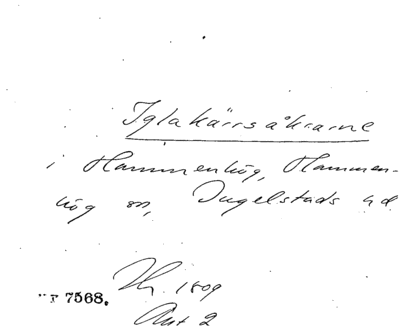 Iglakärrsåkrarne
i Hammenhög, Hammen-
hög sn, Ingelstads hd
1809
7568. Akt 2